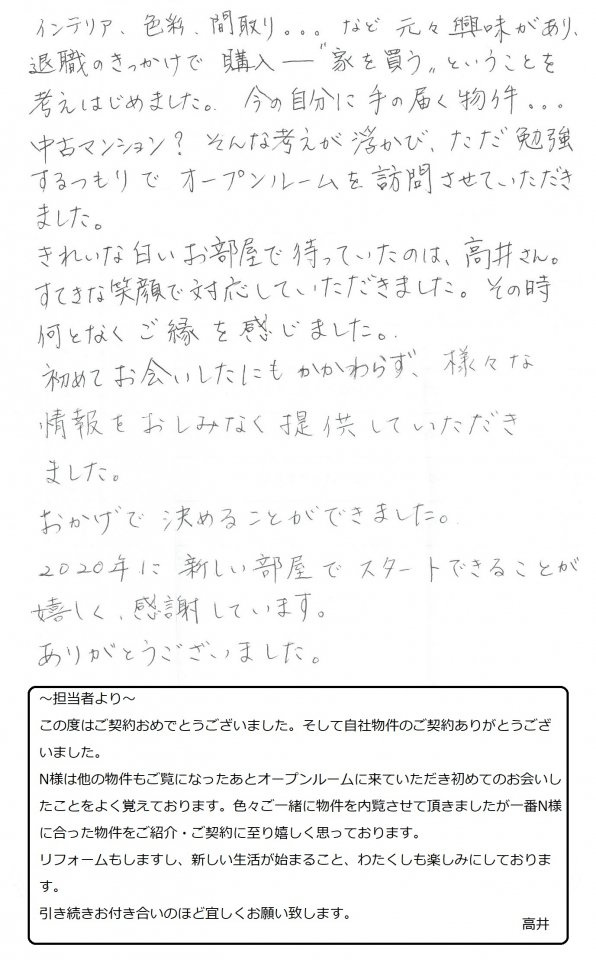 インテリア、色彩、間取り。。。など 元々 興味があり、
退職のきっかけで 購入―"家を買う„ということを
考えはじめました。 今の自分に 手の届く物件。。。
中古マンション? そんな考えが 浮かび、ただ 勉強
するつもりで オープンルームを 訪問させていただき
ました。
きれいな白いお部屋で 待っていたのは、高井さん。
すてきな笑顔で対応していただきました。その時
何となく ご縁 を 感じました。
初めて お会いしたにも かかわらず、様々な
情報を おしみなく 提供していただき
ました。
おかげで 決めることができました。
2020年に 新しい部屋で スタートできることが
嬉しく、感謝しています。
ありがとうございました。
～担当者より～
この度はご契約おめでとうございました。そして自社物件のご契約ありがとうござ
いました。
N様は他の物件もご覧になったあとオープンルームに来ていただき初めてのお会いし
たことをよく覚えております。色々ご一緒に物件を内覧させて頂きましたが一番N様
に合った物件をご紹介・ご契約に至り嬉しく思っております。
リフォームもしますし、新しい生活が始まること、わたくしも楽しみにしておりま
す。
引き続きお付き合いのほど宜しくお願い致します。
高井